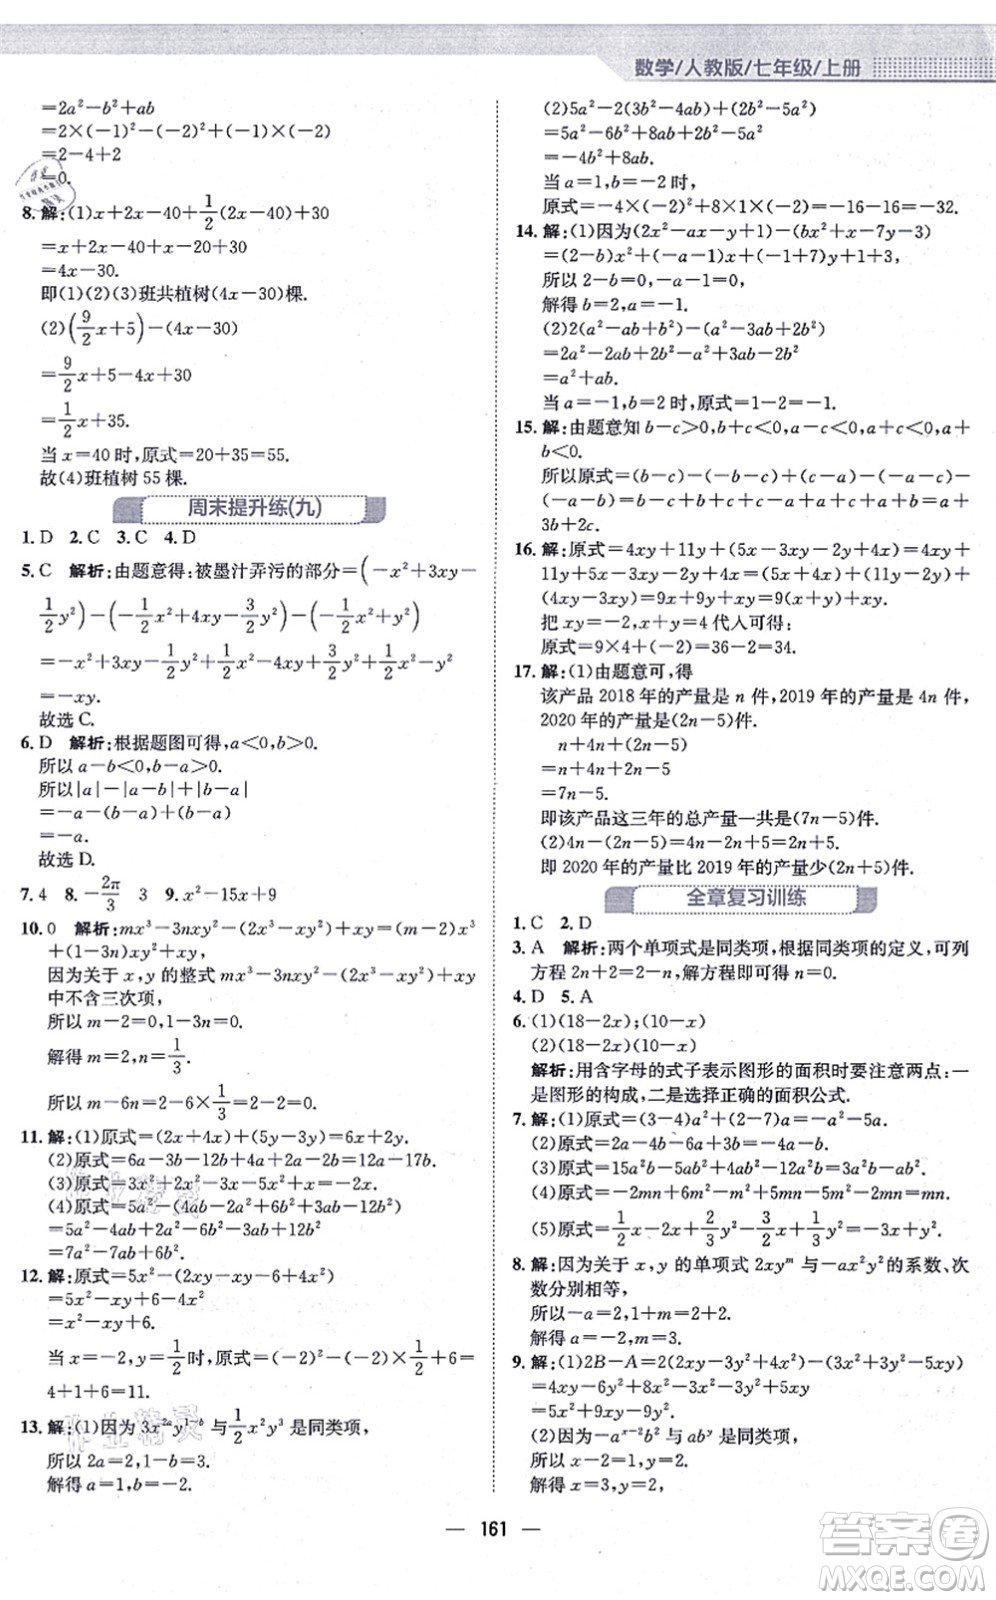 数学/人教版/七年级/上册
=2a²-b²+ab
=2×(-1)²-(-2)²+(-1)×(-2)
=2-4+2
=0.
8. 解:(1)x+2x-40+1/2(2x-40)+30
=x+2x-40+x-20+30
=4x-30.
即(1)(2)(3)班共植树(4x-30)棵.
(2)(9/2x+5)-(4x-30)
=9/2x+5-4x+30
=1/2x+35.
当x=40时,原式=20+35=55.
故(4)班植树55棵.
周末提升练(九)
1. D 2. C 3. C 4. D
5. C 解析:由题意得:被墨汁弄污的部分=(-x²+3xy-
1/2y²)-(-1/2x²+4xy-3/2y²)-(-1/2x²+y²)
=-x²+3xy-1/2y²+1/2x²-4xy+3/2y²+1/2x²-y²
=-xy.
故选C.
6. D 解析:根据题图可得,a<0,b>0.
所以a-b<0,b-a>0.
所以|a|-|a-b|+|b-a|
=-a-(b-a)+(b-a)
=-a.
故选D.
7. 4 8. -2π/3 3 9. x²-15x+9
10. 0 解析:mx³-3nxy²-(2x³-xy²)+xy=(m-2)x³
+(1-3n)xy²+xy,
因为关于x,y的整式mx³-3nxy²-(2x³-xy²)+xy
中不含三次项,
所以m-2=0,1-3n=0.
解得m=2,n=1/3.
所以m-6n=2-6×1/3=2-2=0.
11. 解:(1)原式=(2x+4x)+(5y-3y)=6x+2y.
(2)原式=6a-3b-12b+8a=14a-15b.
(3)原式=3x²+2x²-3x-5x²+x=-2x.
(4)原式=5a²-(4ab-2a²+6b²)-3ab+12b²
=5a²-4ab+2a²-6b²-3ab+12b²
=7a²-7ab+6b².
12. 解:原式=5x²-(2xy-xy-6+4x²)
=5x²-xy+6-4x²
=x²-xy+6.
当x=-2,y=1/2时,原式=(-2)²-(-2)×1/2+6=
4+1+6=11.
13. 解:(1)因为3x²ᵃy¹⁻ᵇ与1/2x²y³是同类项,
所以2a=2,1-b=3.
解得a=1,b=-2.
(2)5a²-2(3b²-4ab)+(2b²-5a²)
=5a²-6b²+8ab+2b²-5a²
=-4b²+8ab.
当a=1,b=-2时,
原式=-4×(-2)²+8×1×(-2)=-16-16=-32.
14. 解:(1)因为(2x²-ax-y+1)-(bx²+x-7y-3)
=(2-b)x²+(-a-1)x+(-1+7)y+1+3,
所以2-b=0,-a-1=0.
解得b=2,a=-1.
(2)2(a²-ab+b²)-(a²-3ab+2b²)
=2a²-2ab+2b²-a²+3ab-2b²
=a²+ab.
当a=-1,b=2时,原式=1-2=-1.
15. 解:由题意知b-c>0,b+c<0,a-c<0,a+c<0,a+
b<0.
所以原式=(b-c)-(b+c)-(a-c)+(a+c)-(a+
b)+a=b-c-b-c-a+c+a+c-a-b+a=
2b+2c.
16. 解:原式=4xy+11y+(5x-3xy-2x-2y+6x)=
4xy+11y+5x-3xy-2x-2y+6x=(5x-2x+6x)+
(4xy-3xy)=9x+9y+xy=9(x+y)+xy.
把xy=-2,x+y=4代人可得:
原式=9×4+(-2)=36-2=34.
17. 解:(1)由题意可,得
该产品2018年的产量是n件,2019年的产量是4n件,
2020年的产量是(2n-5)件.
n+4n+(2n-5)
=n+4n+2n-5
=7n-5.
即该产品这三年的总产量一共是(7n-5)件.
(2)4n-(2n-5)=4n-2n+5=2n+5.
即2020年的产量比2019年的产量少(2n+5)件.
全章复习训练
1. C 2. D
3. A 解析:两个单项式是同类项,根据同类项的定义,可列
方程2n+2=2-n,解方程即可得n=0.
4. D 5. A
6. (1)(18-2x);(10-x)
(2)(18-2x)(10-x)
解析:用含字母的式子表示图形的面积时要注意两点:一
是图形的构成,二是选择正确的面积公式.
7. 解:(1)原式=(3-4)a²+(2-7)a=-a²-5a.
(2)原式=2a-4b-6a+3b=-4a-b.
(3)原式=15a²b-5ab²+4ab²-12a²b=3a²b-ab².
(4)原式=-2mn+6m²-m²+5mn-5m²-2mn=mn.
(5)原式=1/2x-2x+2/3y²-3/2x+1/3y²=-3x+y².
8. 解:因为关于x,y的单项式2xyᵐ与-ax²y²的系数、次
数分别相等,
所以-a=2,1+m=2+2.
解得a=-2,m=3.
9. 解:(1)2B-A=2(2xy-3y²+4x²)-(3x²-3y²-2xy)
=4xy-6y²+8x²-3x²+3y²+2xy
=5x²+6xy-9y².
(2)因为-aˣ⁻²b²与abʸ是同类项,
所以x-2=1,y=2.
解得x=3,y=2,
161
答案圈
MXQE.COM